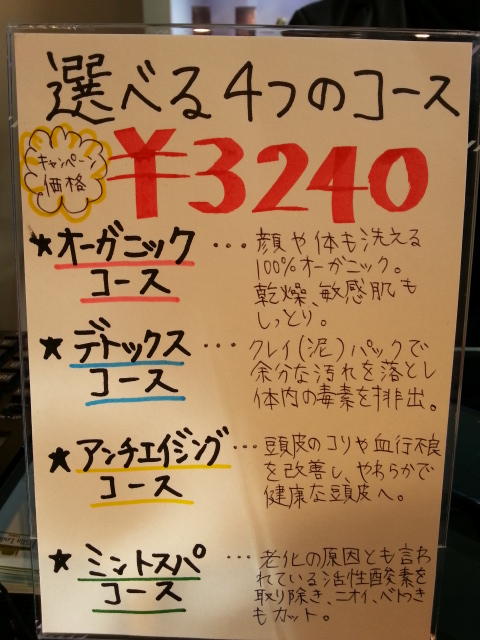 選べる4つのコース
キャンペーン
価格
¥3240
★オーガニック
コース
・・・顔や体も洗える
100%オーガニック。
乾燥、敏感肌も
しっとり。
★デトックス
コース
・・・クレイ(泥)パックで
余分な汚れを落とし
体内の毒素を排出。
★アンチエイジング
コース
・・・頭皮のコリや血行不良
を改善し、やわらかで
健康な頭皮へ。
★ミントスパ
コース
・・・老化の原因とも言わ
れている活性酸素を
取り除き、ニオイ、ベトつき
もカット。